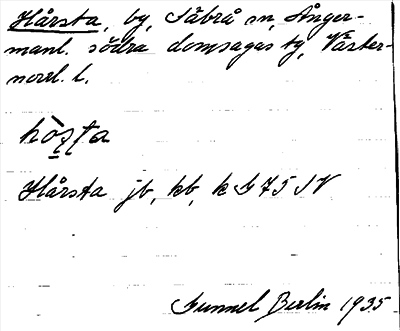 Hårsta, by, Säbrå sn, Ånger-
manl. södra domsagas tg, Väster-
norrl. l.
hòs̩ta
Hårsta jb, kb, k G 75 SV
Gunnel Berlin 1935